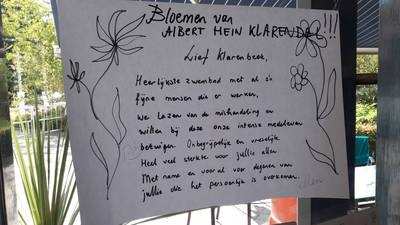 Bloemen van
ALBERT HEIN KLARENDAL!!!
Lief Klarenbeek,
Heerlijkste zwembad met al z'n
fijne mensen die er werken,
We lazen van de mishandeling en
willen bij deze onze intense medeleven
betuigen. Onbegrijpelijk en vreselijk.
Heel veel sterkte voor jullie allen.
Met name en vooral voor degenen van
jullie die het persoonlijk is overkomen.